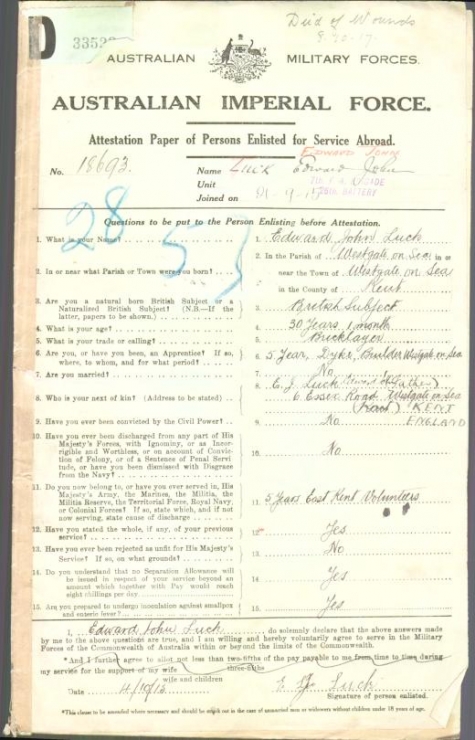 Died of Wounds
9.10.17.
D
3353
AUSTRALIAN MILITARY FORCES.
AUSTRALIAN IMPERIAL FORCE.
Attestation Paper of Persons Enlisted for Service Abroad.
EDWARD JOHN
No. 18693. Name Luck Edward John
Unit BATTERY
Joined on
28 5
Questions to be put to the Person Enlisting before Attestation.
1. What is your Name? 1. Edward John Luck
2. In or near what Parish or Town were you born? 2. In the Parish of Westgate on Sea in or
near the Town of Westgate on Sea
in the County of Kent
3. Are you a natural born British Subject or a Naturalized British Subject? (N.B.—If the latter, papers to be shown.) 3. British Subject
4. What is your age? 4. 30 Years 1 month
5. What is your trade or calling? 5. Bricklayer
6. Are you, or have you been, an Apprentice? If so, where, to whom, and for what period? 6. 5 Year, Dyke, Builder Westgate on Sea
7. Are you married? 7. No
8. Who is your next of kin? (Address to be stated) 8. E. J. Luck (Father)
6 Essex Road Westgate on Sea
KENT
ENGLAND
9. Have you ever been convicted by the Civil Power? 9. No
10. Have you ever been discharged from any part of His Majesty's Forces, with Ignominy, or as Incorrigible and Worthless, or on account of Conviction of Felony, or of a Sentence of Penal Servitude, or have you been dismissed with Disgrace from the Navy? 10. No
11. Do you now belong to, or have you ever served in, His Majesty's Army, the Marines, the Militia, the Militia Reserve, the Territorial Force, Royal Navy, or Colonial Forces? If so, state which, and if not now serving, state cause of discharge 11. 5 Years East Kent Volunteers
12. Have you stated the whole, if any, of your previous service? 12. Yes
13. Have you ever been rejected as unfit for His Majesty's Service? If so, on what grounds? 13. No
14. Do you understand that no Separation Allowance will be issued in respect of your service beyond an amount which together with Pay would reach eight shillings per day 14. Yes
15. Are you prepared to undergo inoculation against smallpox and enteric fever? 15. Yes
I, Edward John Luck do solemnly declare that the above answers made
by me to the above questions are true, and I am willing and hereby voluntarily agree to serve in the Military
Forces of the Commonwealth of Australia within or beyond the limits of the Commonwealth.
*And I further agree to allot not less than two-fifths of the pay payable to me from time to time during
three-fifths
my service for the support of my wife
wife and children
Date 4/10/15 E. J. Luck
Signature of person enlisted.
*This clause to be amended where necessary and should be struck out in the case of unmarried men or widowers without children under 18 years of age.